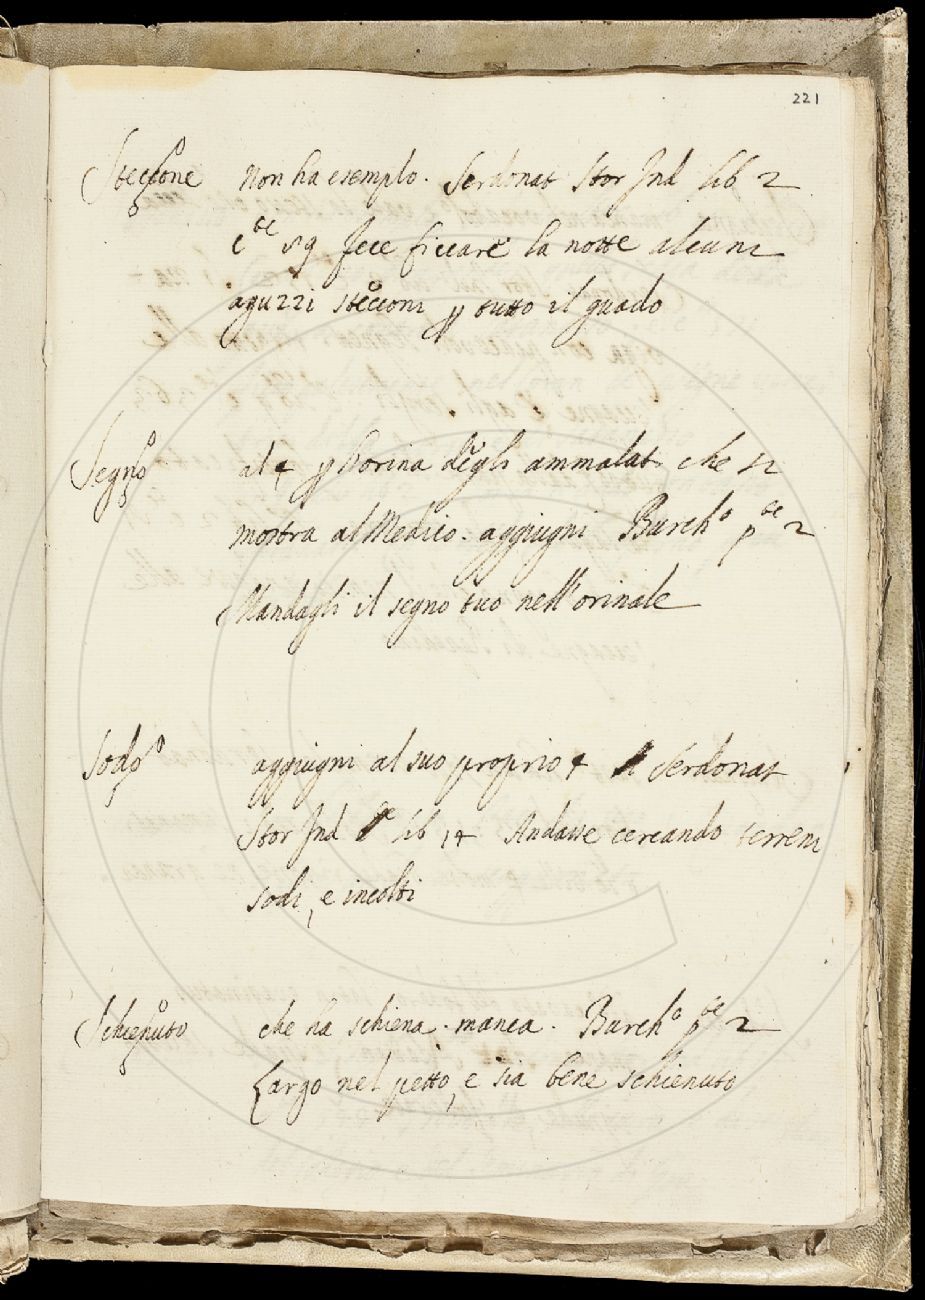 221
Steccone Non ha esemplo. Serdonat Stor Ind lib 2
Cte 59 Fece ficcare la notte alcuni
aguzzi stecconi p tutto il guado
Segno al 4 p l'orina degli ammalati che si
mostra al Medico. aggiugni Burcho pte 2
Mandagli il segno tuo nell'orinale
Sodo aggiugni al suo proprio 4 Serdonat
Stor Ind lib 14 Andasse cercando terreni
sodi, e incolti
Schienuto che ha schiena. manca. Burcho pte 2
Largo nel petto, e sia bene schienuto